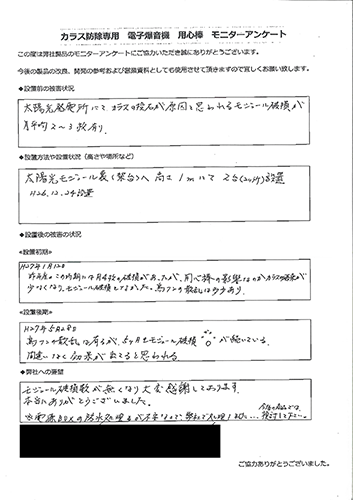 カラス防除専用 電子爆音機 用心棒 モニターアンケート
この度は弊社製品のモニターアンケートにご協力いただき誠にありがとうございます。
今後の製品の改良、開発の参考および営業資料としても使用させて頂きますので宜しくお願い致します。
◆設置前の被害状況
太陽光発電所にて カラスの投石が原因と思われるモジュール破損が
月平均2～3枚有り.
◆設置方法や設置状況(高さや場所など)
太陽光モジュール裏(架台)へ 高さ1mにて 2台 設置
H26.12.24設置
◆設置後の被害の状況
≪設置初期≫
H27年1月12日
昨年度の この時期には 破損があったが、用心棒の影響なのかカラスの
少なくなり、モジュール破損 フンの散乱は 有り.
≪設置後期≫
H27年5月28日
フンの散乱は有るが、5ヶ月 モジュール破損 "0" が続いている.
間違いなく効果が出てると思われる.
◆弊社への要望
モジュール破損数が無くなり 大変感謝しております.
本当にありがとうございました。
電源BOXの防水処理
ご協力ありがとうございました。